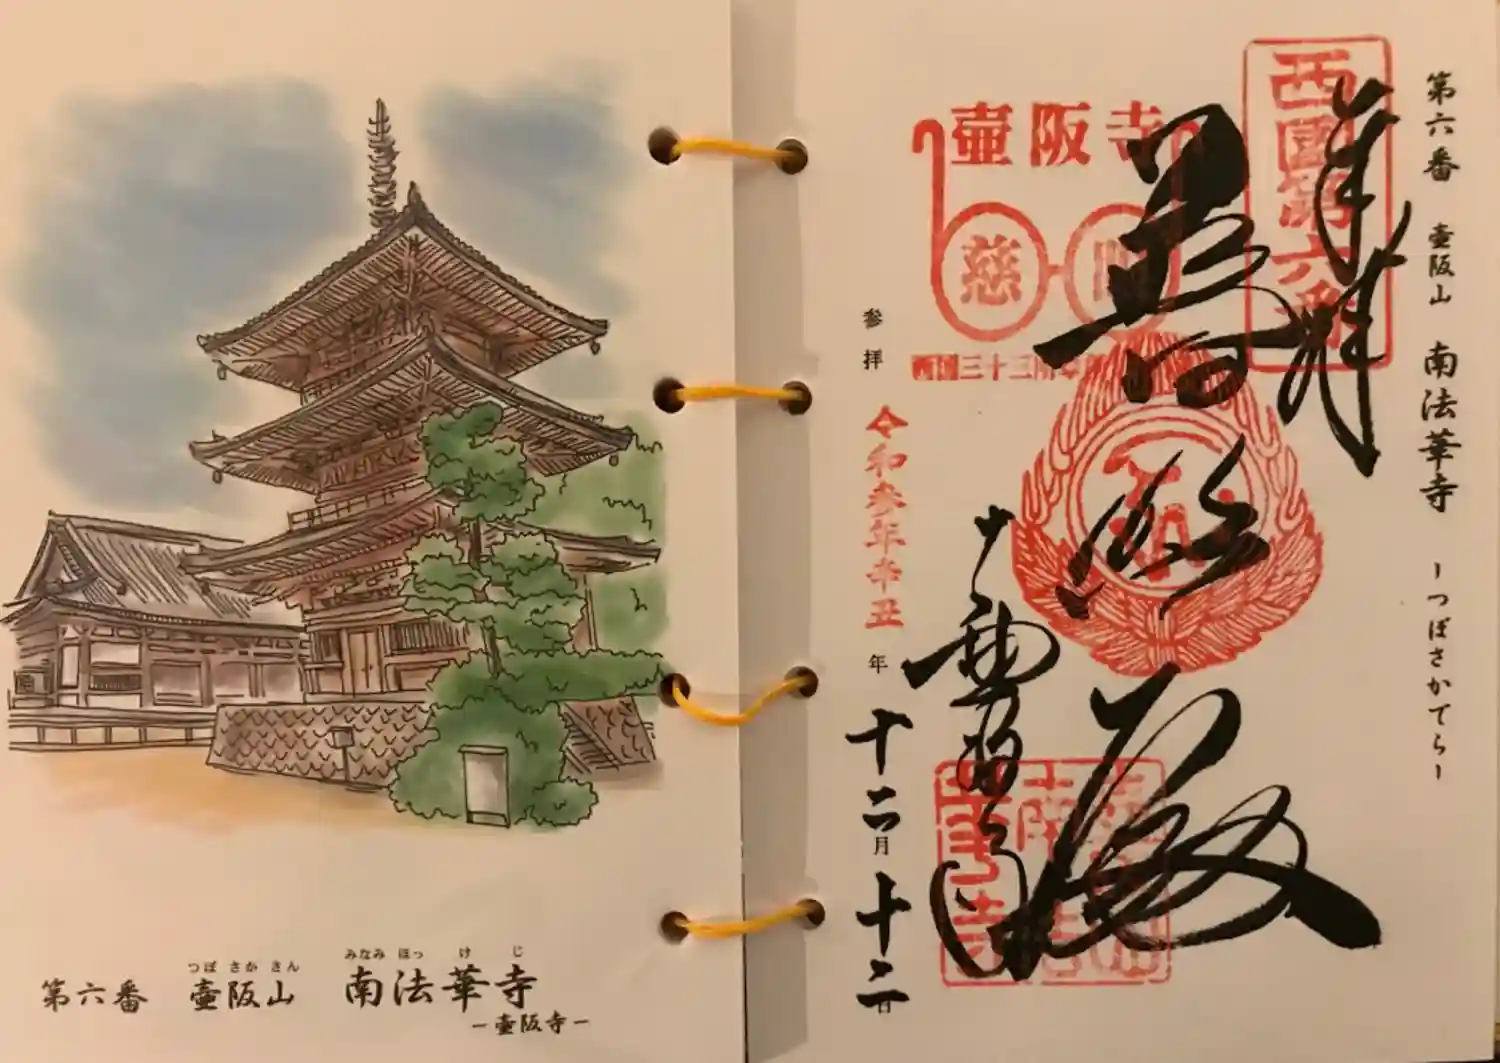 第六番 壷阪山 南法華寺
つぼ さか さん みなみ ほっ け じ
－壷阪寺－
第六番 壷阪山 南法華寺 －つぼさかてら－
奉拝
西國第六番
壷阪寺
慈眼
普照殿
南法華寺
参拝 令和参年辛丑年 十二月十二日